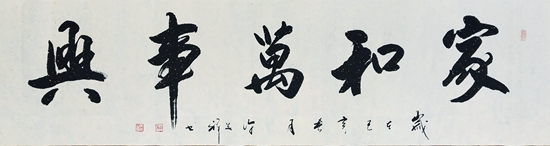 家和萬事興
歲在己亥春月